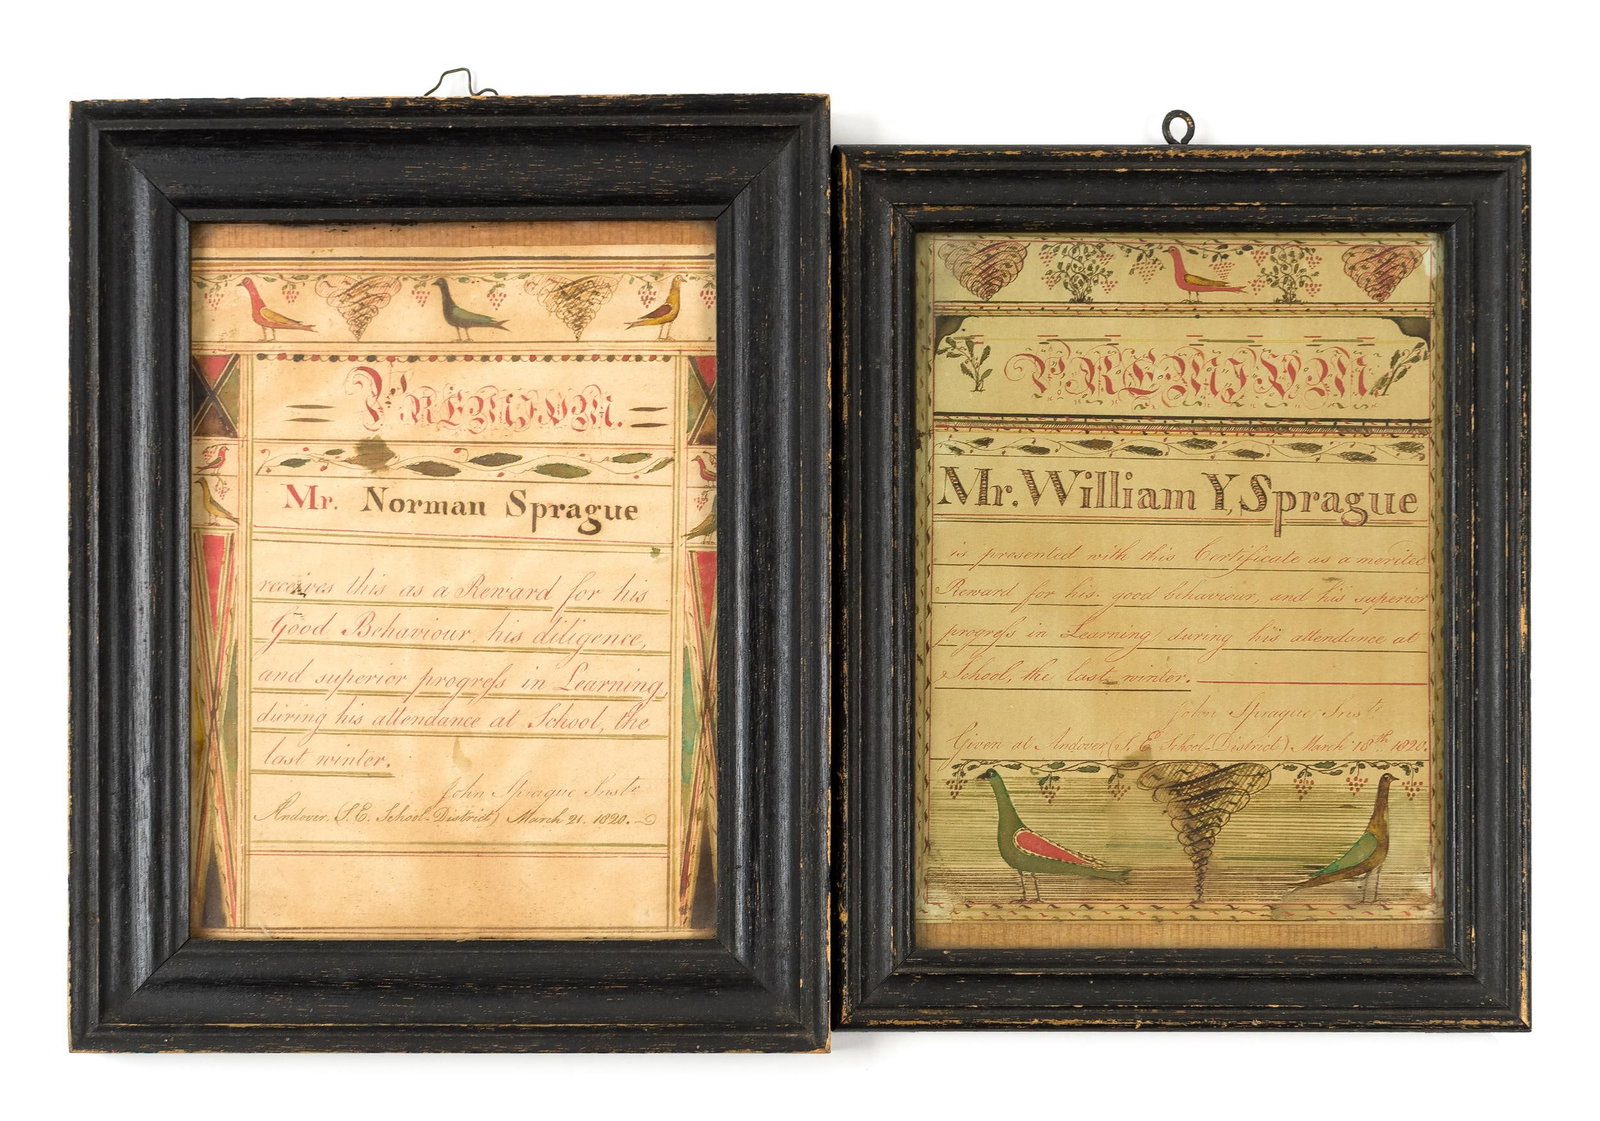 PREMIUM.
Mr. Norman Sprague
receives this as a Reward for his
Good Behaviour, his diligence,
and superior progreſs in Learning,
during his attendance at School, the
last winter.
John Sprague Instr
Andover. (S.E. School-District) March 21. 1820.
PREMIUM.
Mr. William Y, Sprague
is presented with this Certificate as a merited
Reward for his good behaviour, and his superior
progreſs in Learning during his attendance at
School, the last winter.
John Sprague Instr
Given at Andover (S. E. School-District) March 18th 1820.